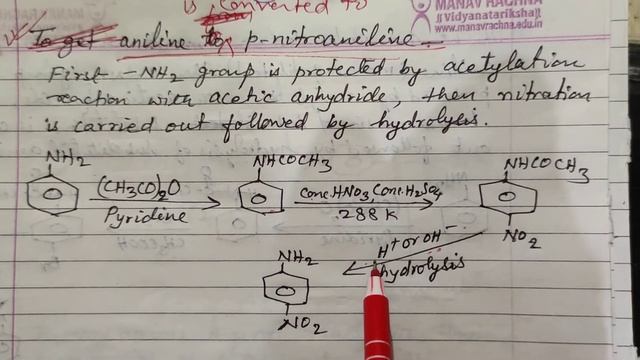 is converted to
MANAV RACHNA
vidyanatariksha
www.manavrachna.edu.in
To get aniline to p-nitroaniline.
First -NH2 group is protected by acetylation
reaction with acetic anhydride, then nitration
is carried out followed by hydrolysis.
NH2
(CH3CO)2O
Pyridine
NHCOCH3
Conc.HNO3, Conc.H2SO4
288 K
NHCOCH3
NO2
H+ or OH-
hydrolysis
NH2
NO2